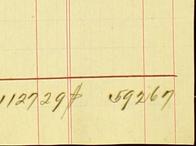 112729 59267